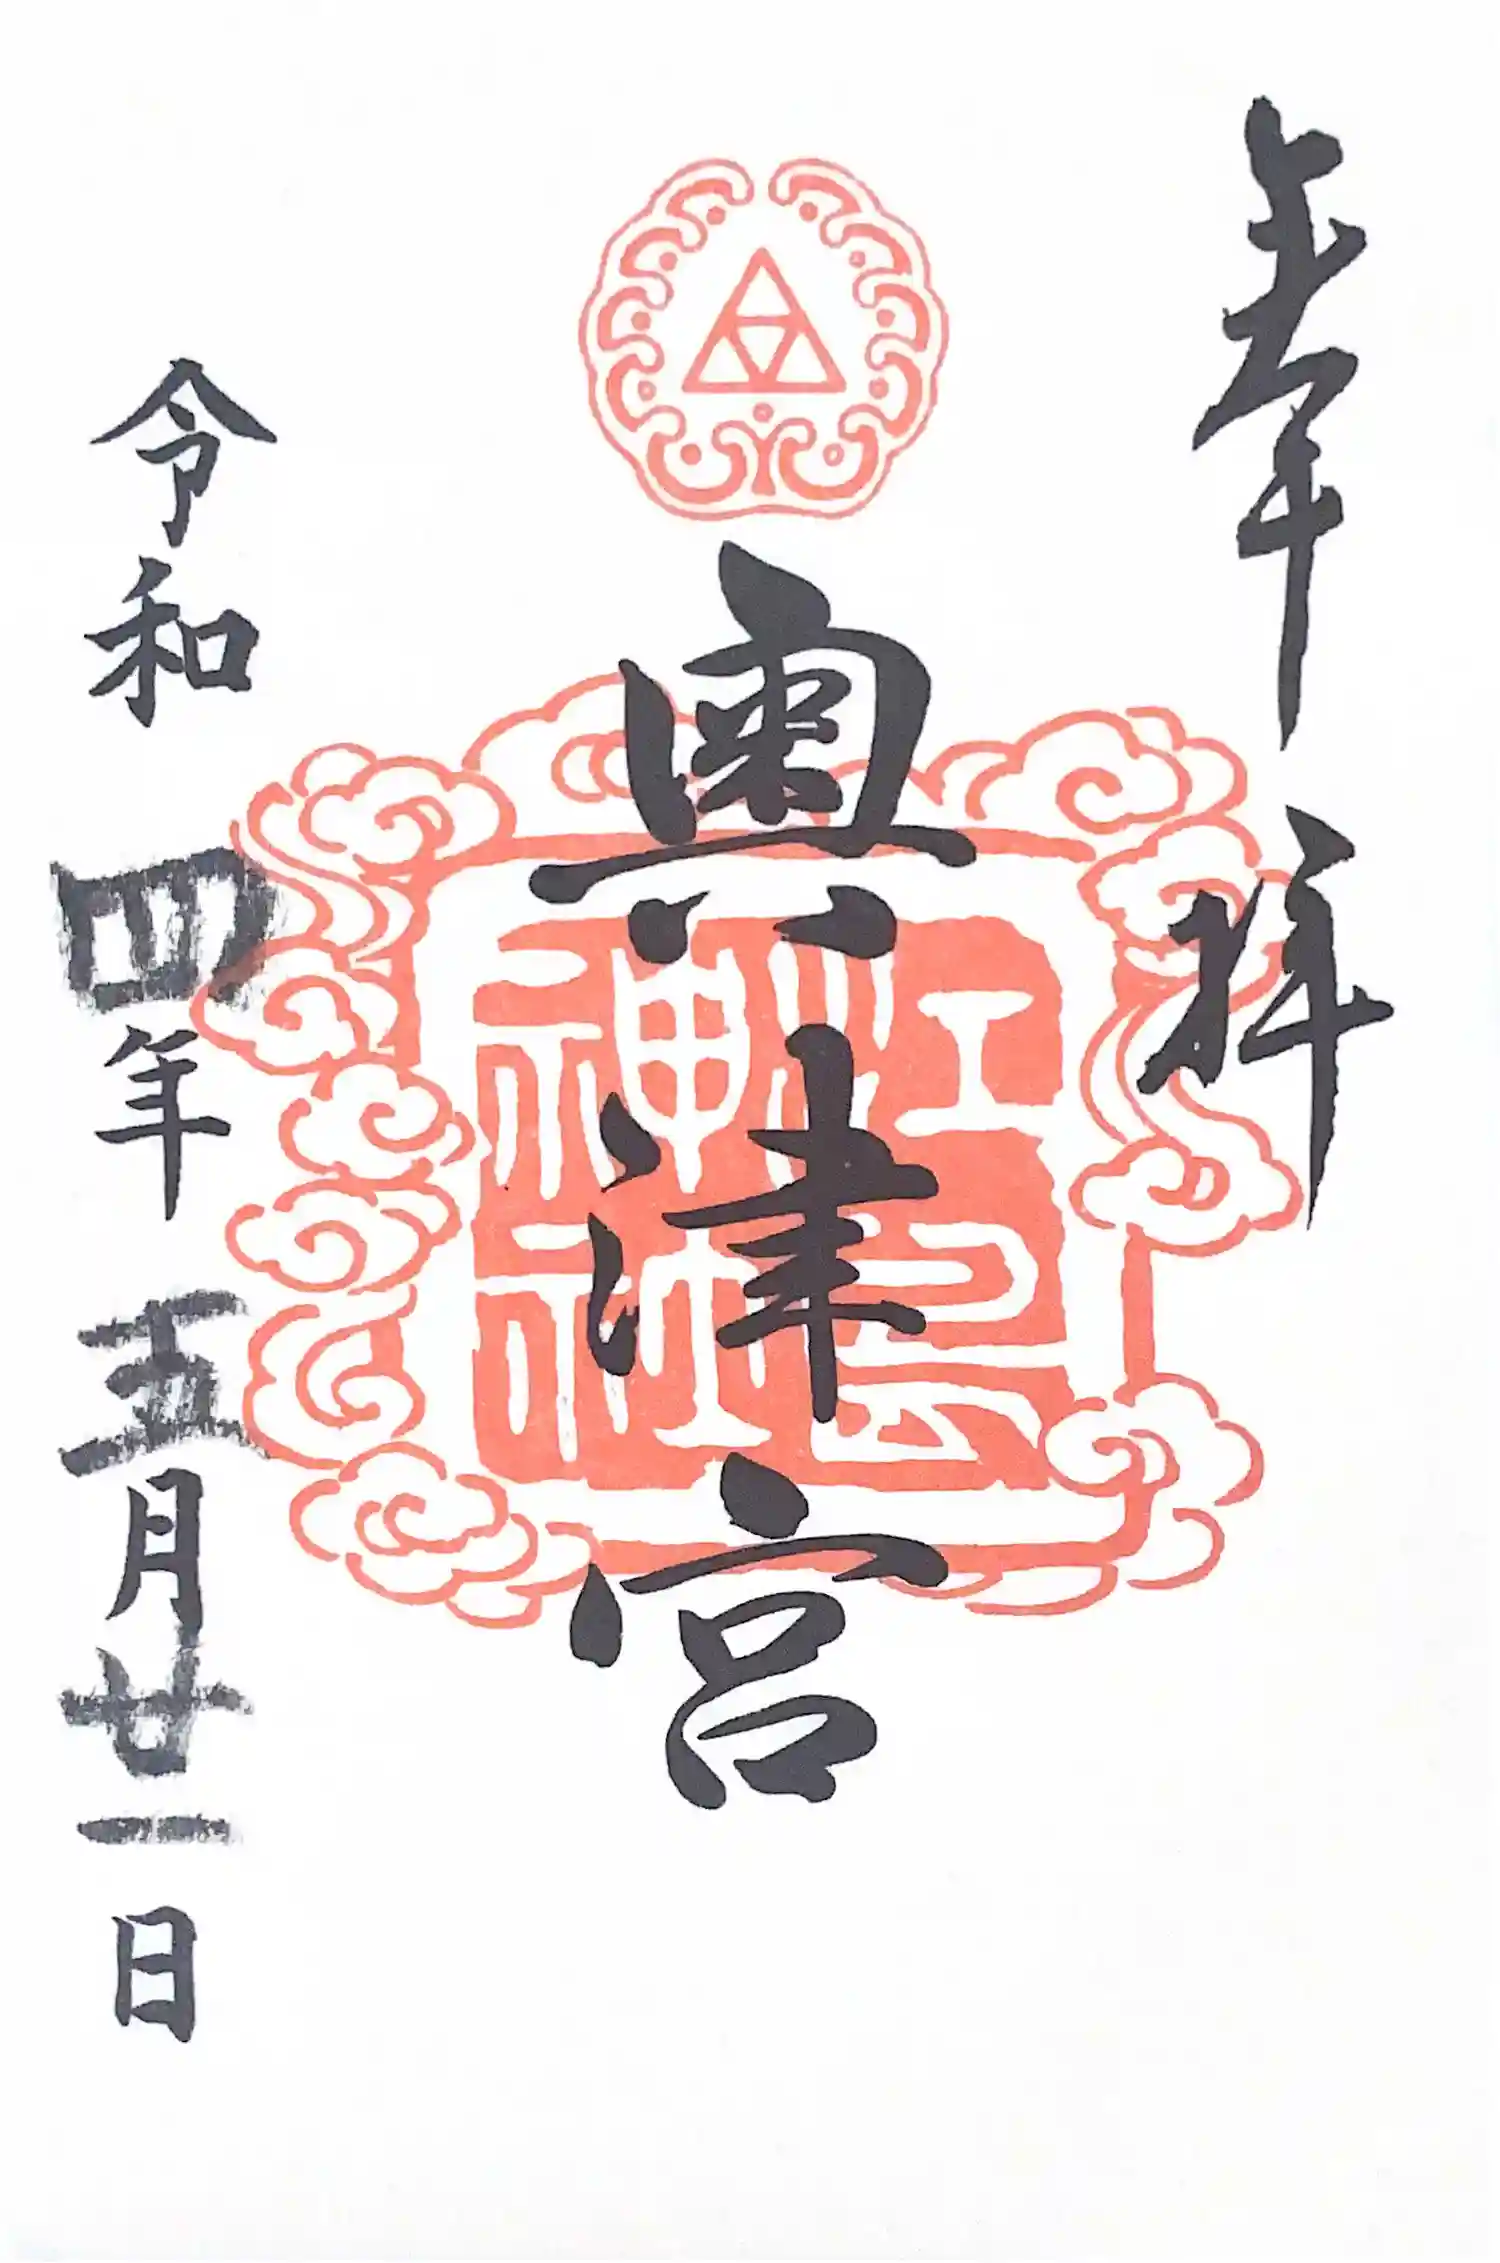 奉拝
奥津宮
江島神社
令和四年五月廿一日